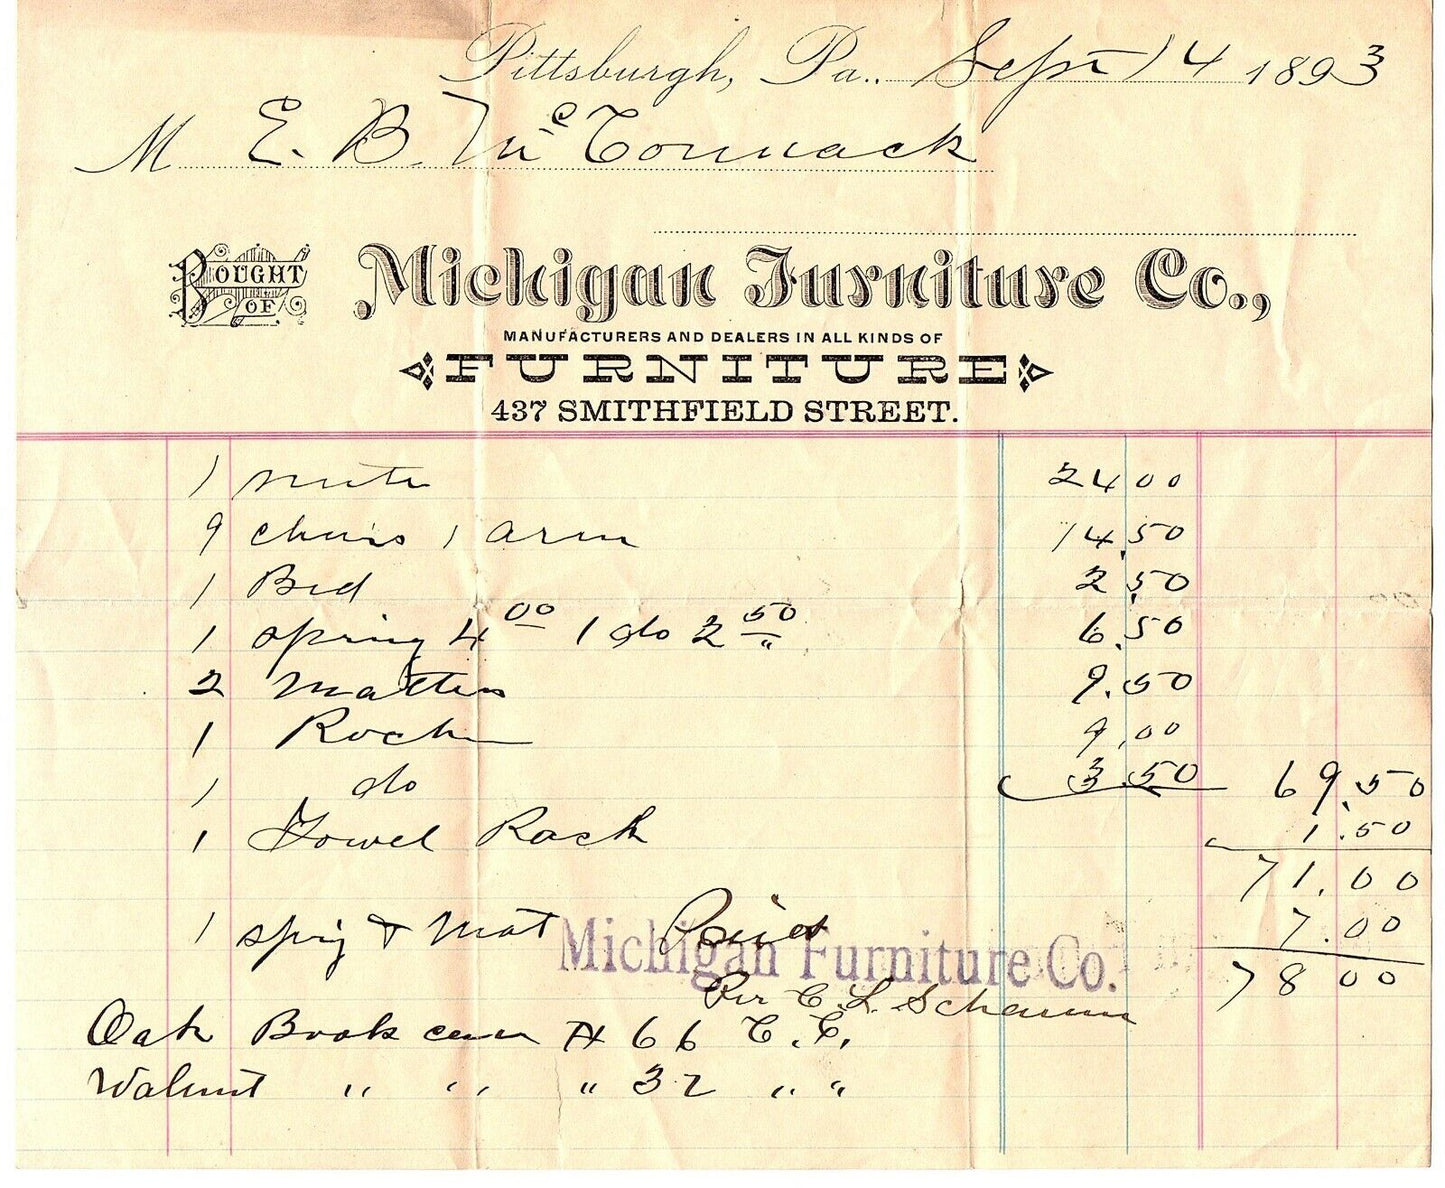 Pittsburgh, Pa.. Sept 14 1893
M E. B. McCormack
BOUGHT OF Michigan Furniture Co.,
MANUFACTURERS AND DEALERS IN ALL KINDS OF
FURNITURE
437 SMITHFIELD STREET.
1 24 00
9 chairs 1 arm 14.50
1 Bed 2.50
1 spring 4 00 1 do 2 50 6.50
2 9.50
1 Rocker 9.00
1 do 3.50 69.50
1 Towel Rack 1.50
71.00
1 sprig & Mat Paid 7.00
Michigan Furniture Co.
78 00
Per C. L. Schaum
Oak Book # 66 C. C.
Walnut " " " 32 " "